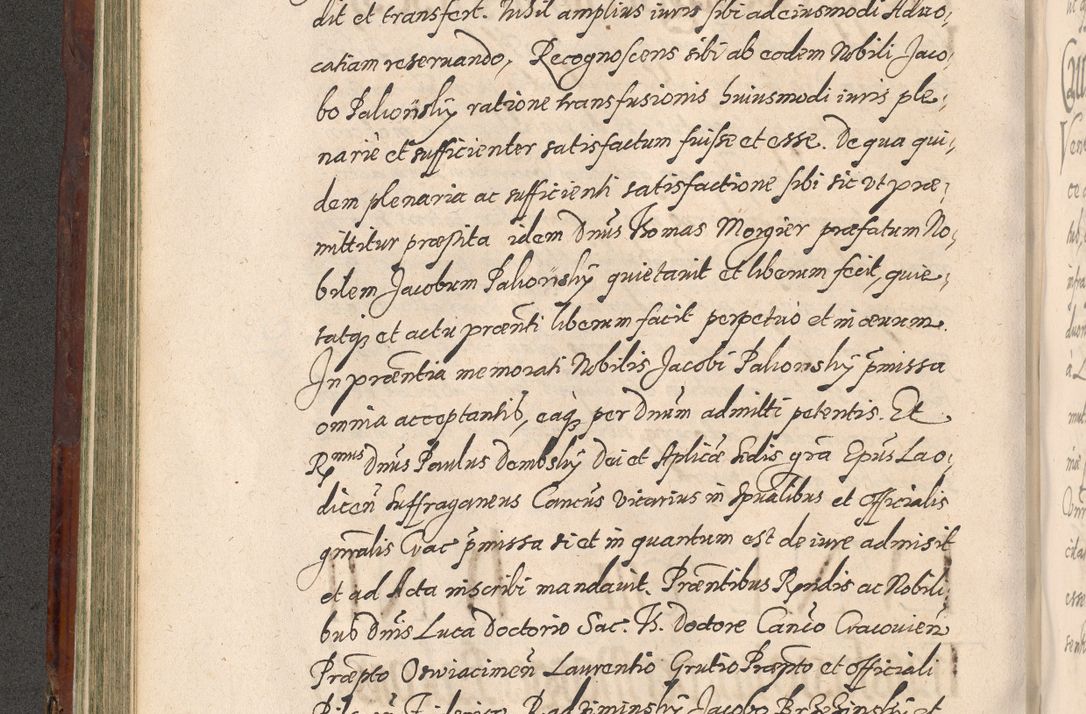 dit et transfert. Nihil amplius iuris sibi ad eiusmodi Aduo,
catiam reseruando, Recognoscens sibi ab eodem Nobili Jaco,
bo Palioński ratione transfusionis huiusmodi iuris ple,
nariè et sufficienter satisfactum fuisse et esse. De qua qui,
dem plenaria ac sufficienti satisfactione sibi sic ut præ,
mittitur præstita idem Dnus Thomas Morgier præfatum No,
bilem Jacobum Palioński quietauit et liberum fecit, quie,
tatq; et actu prænti liberum facit perpetuo et in æuum.
In præntia memorati Nobilis Jacobi Palionski pmissa
omnia acceptantis, eaq; per Dnum admitti petentis. Et
Rmus Dnus Paulus Dembski Dei et Aplicæ Sedis gra Epus Lao,
diceñ Suffraganeus Cancus Vicarius in Spualibus et Officialis
gnralis Crac pmissa si et in quantum est de iure admisit
et ad Acta inscribi mandauit. Præntibus Rendis ac Nobili,
bus Dnis Luca Doctorio Sac. Th. Doctore Canco Cracouień
Præpto Oswiacimeñ Laurentio Grutio Præpto et Officiali
Jacobo Brzezinski et